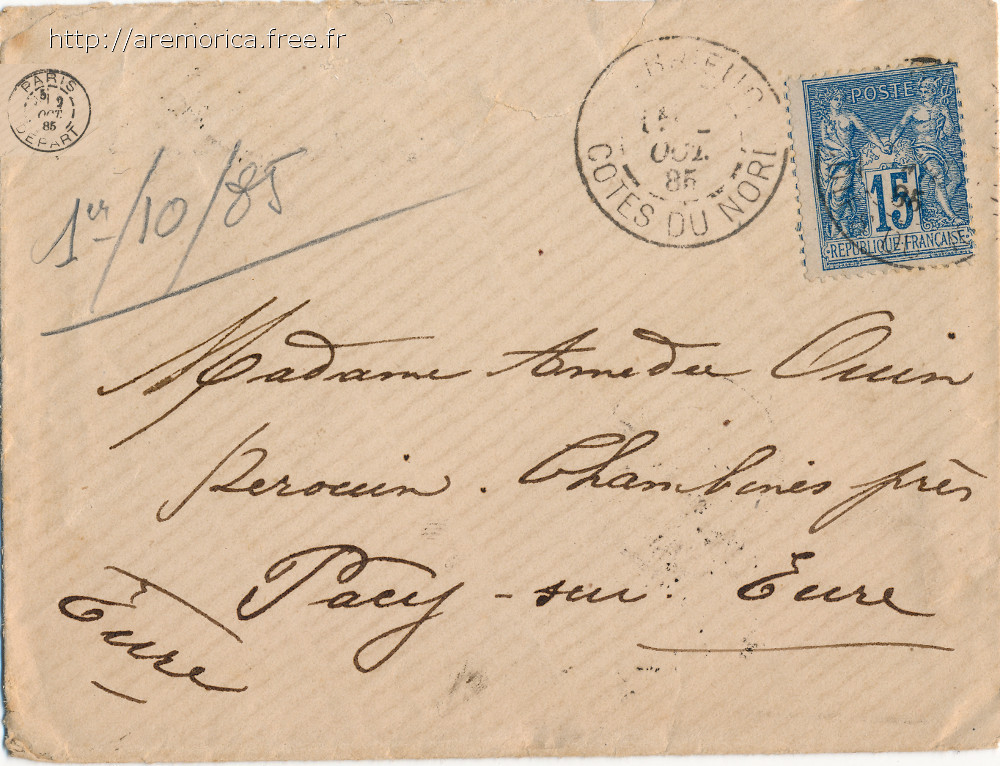 http://aremorica.free.fr
PARIS
OCT
85
DEPART
BRIEUC
OCT.
85
COTES DU NORD
POSTE
15
REPUBLIQUE FRANCAISE
1er/10/85
Madame Amedée Ouin
Chambines près
Pacy-sur-Eure
Eure